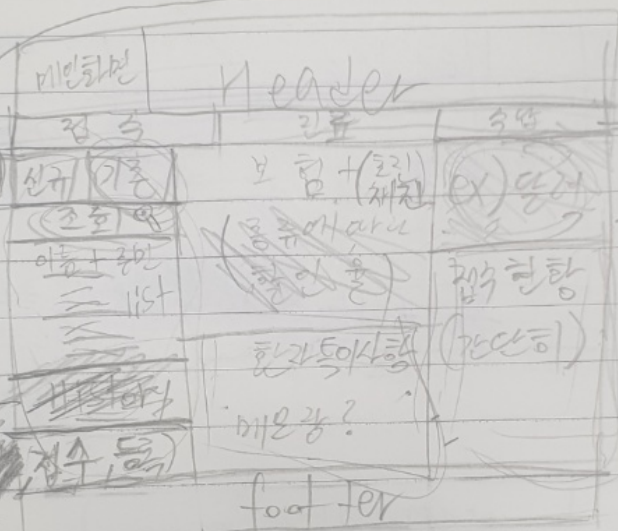 메인화면
Header
접수
진료
수납
신규
기존
조회
이름 + 주민
list
접수, 등록
보험 + (초진
재진)
(종류에 따라
할인율)
환자특이사항
메모장?
ex) 달력
접수현황
(간단히)
footer